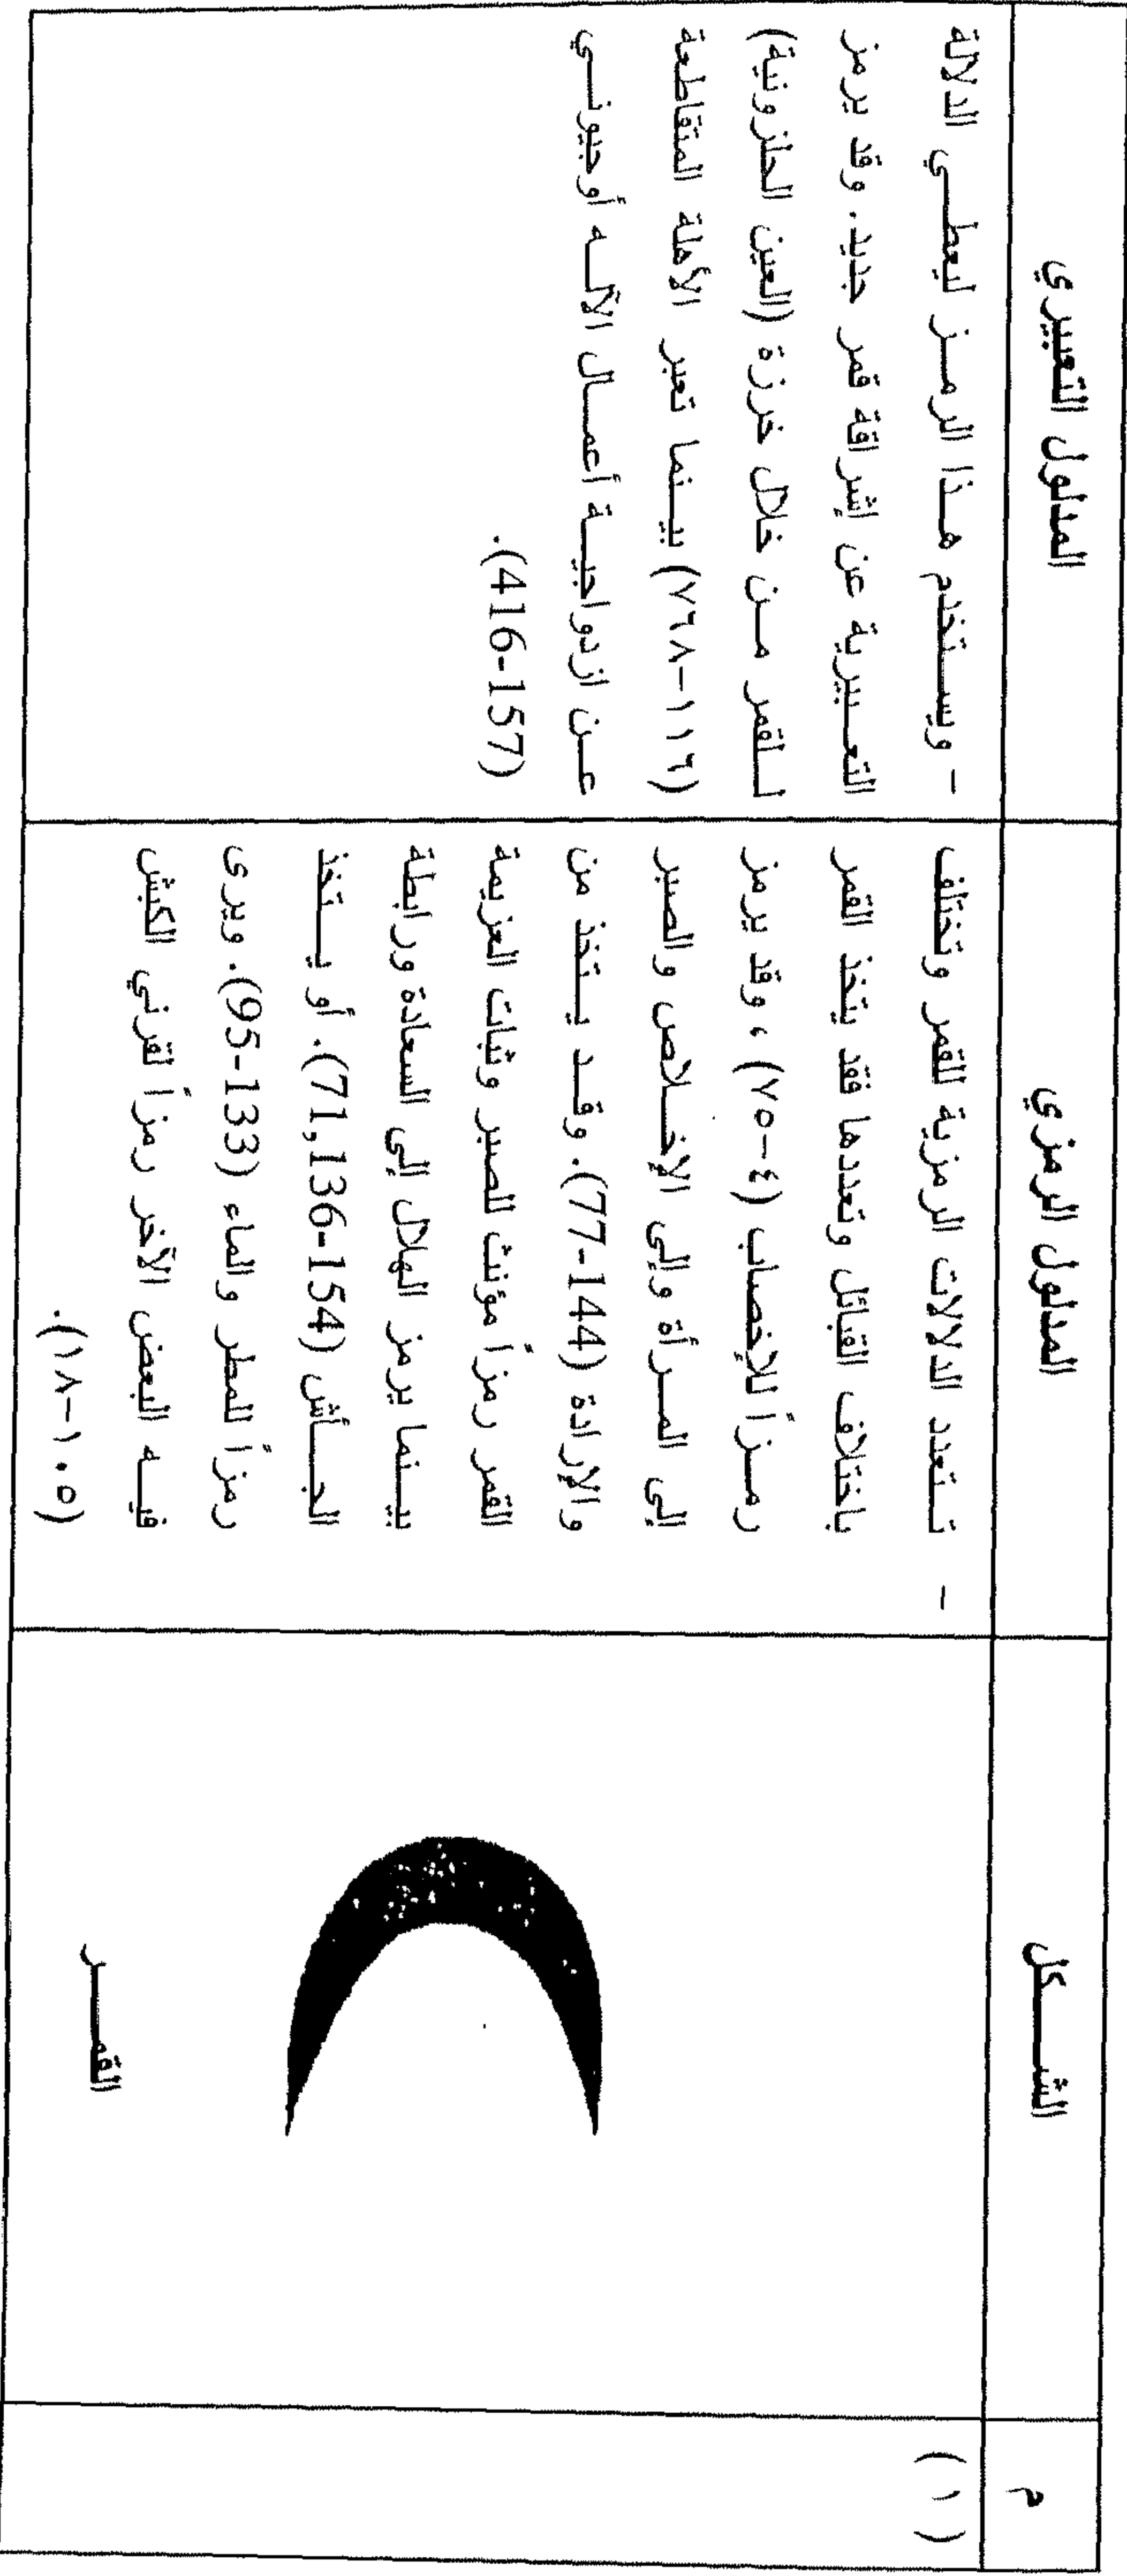 م
الشـــكل
المدلول الرمزي
المدلول التعبيري
( ١ )
القمـــر
- تـتعدد الدلالات الرمزية للقمر وتختلف
باختلاف القبائل وتعددها فقد يتخذ القمر
رمـزاً للإخصاب (٤-٧٥) ، وقد يرمز
إلى المـرأة وإلى الإخـلاص والصبر
والإرادة (77-144). وقـد يـتخذ من
القمر رمزاً مؤنث للصبر وثبات العزيمة
بيـنما يرمز الهلال إلى السعادة ورابطة
الجـأش (71,136-154). أو يـتخذ
رمزاً للمطر والماء (95-133). ويرى
فيـه البعض الآخر رمزاً لقرني الكبش
(١٠٥-١٨).
- ويسـتخدم هـذا الرمـز ليعطـي الدلالة
التعـبيرية عن إشراقة قمر جديد. وقد يرمز
لـلقمر مـن خلال خرزة (العين الحلزونية)
(١١٦-٧٦٨) بيـنما تعبر الأهلة المتقاطعة
عـن ازدواجيـة أعمـال الآلـه أوجيونـي
(416-157).